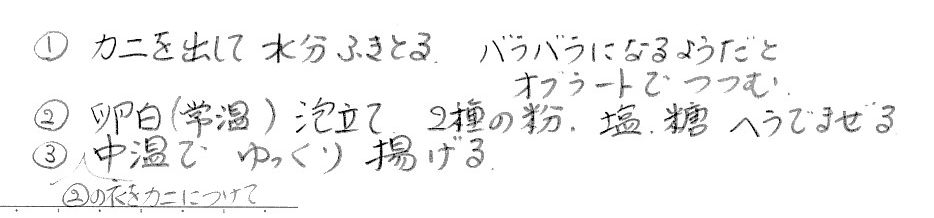 ① カニを出して 水分ふきとる. バラバラになるようだと
オブラートで つつむ.
② 卵白(常温) 泡立て 2種の粉. 塩. 糖 へらでまぜる
③ 中温で ゆっくり 揚げる.
②の衣をカニにつけて